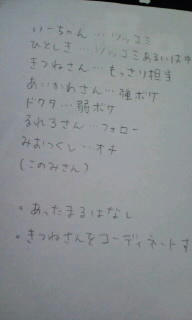 いーちゃん…ツッコミ
ひとしき…ツッコミあるいは中
きつねさん…もっさり担当
あいかわさん…強ボケ
ドクタ…弱ボケ
るれろさん…フォロー
みおつくし…オチ
(このみさん)
・あったまるはなし
・きつねさんをコーディネートす